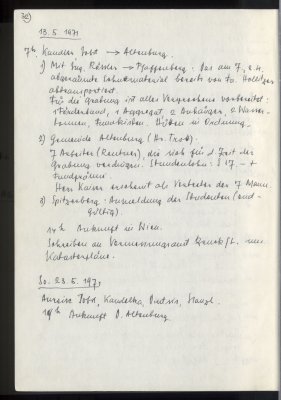 13.5.1971
7h Kandler Jobst → Altenburg.
1) Mit Ing. Rössler → Pfaffenberg: Das am 7. z. H.
abgeräumte Schuttmaterial bereits von Fa. Hollitzer
abtransportiert.
Für die Grabung ist alles Vergessene vorbereitet:
1 Förderband, 1 Aggregat, 2 Anhänger, 2 Wasser-
tonnen, Fundkisten. Hütten in Ordnung.
2) Gemeinde Altenburg (Hr. Trost)
7 Arbeiter (Rentner), die sich für d. Zeit der
Grabung verdingen. Stundenlohn: S 17.- +
Fundprämie.
Herr Kaiser erscheint als Vertreter der 7 Mann.
3) Spitzenberg: Anmeldung der Studenten (end-
gültig).
14h Ankunft in Wien.
Schreiben an Vermessungsamt Bruck/L. wegen
Katasterpläne.
So. 23.5.1971
Abreise Jobst, Kandelka,
19h Ankunft D. Altenburg